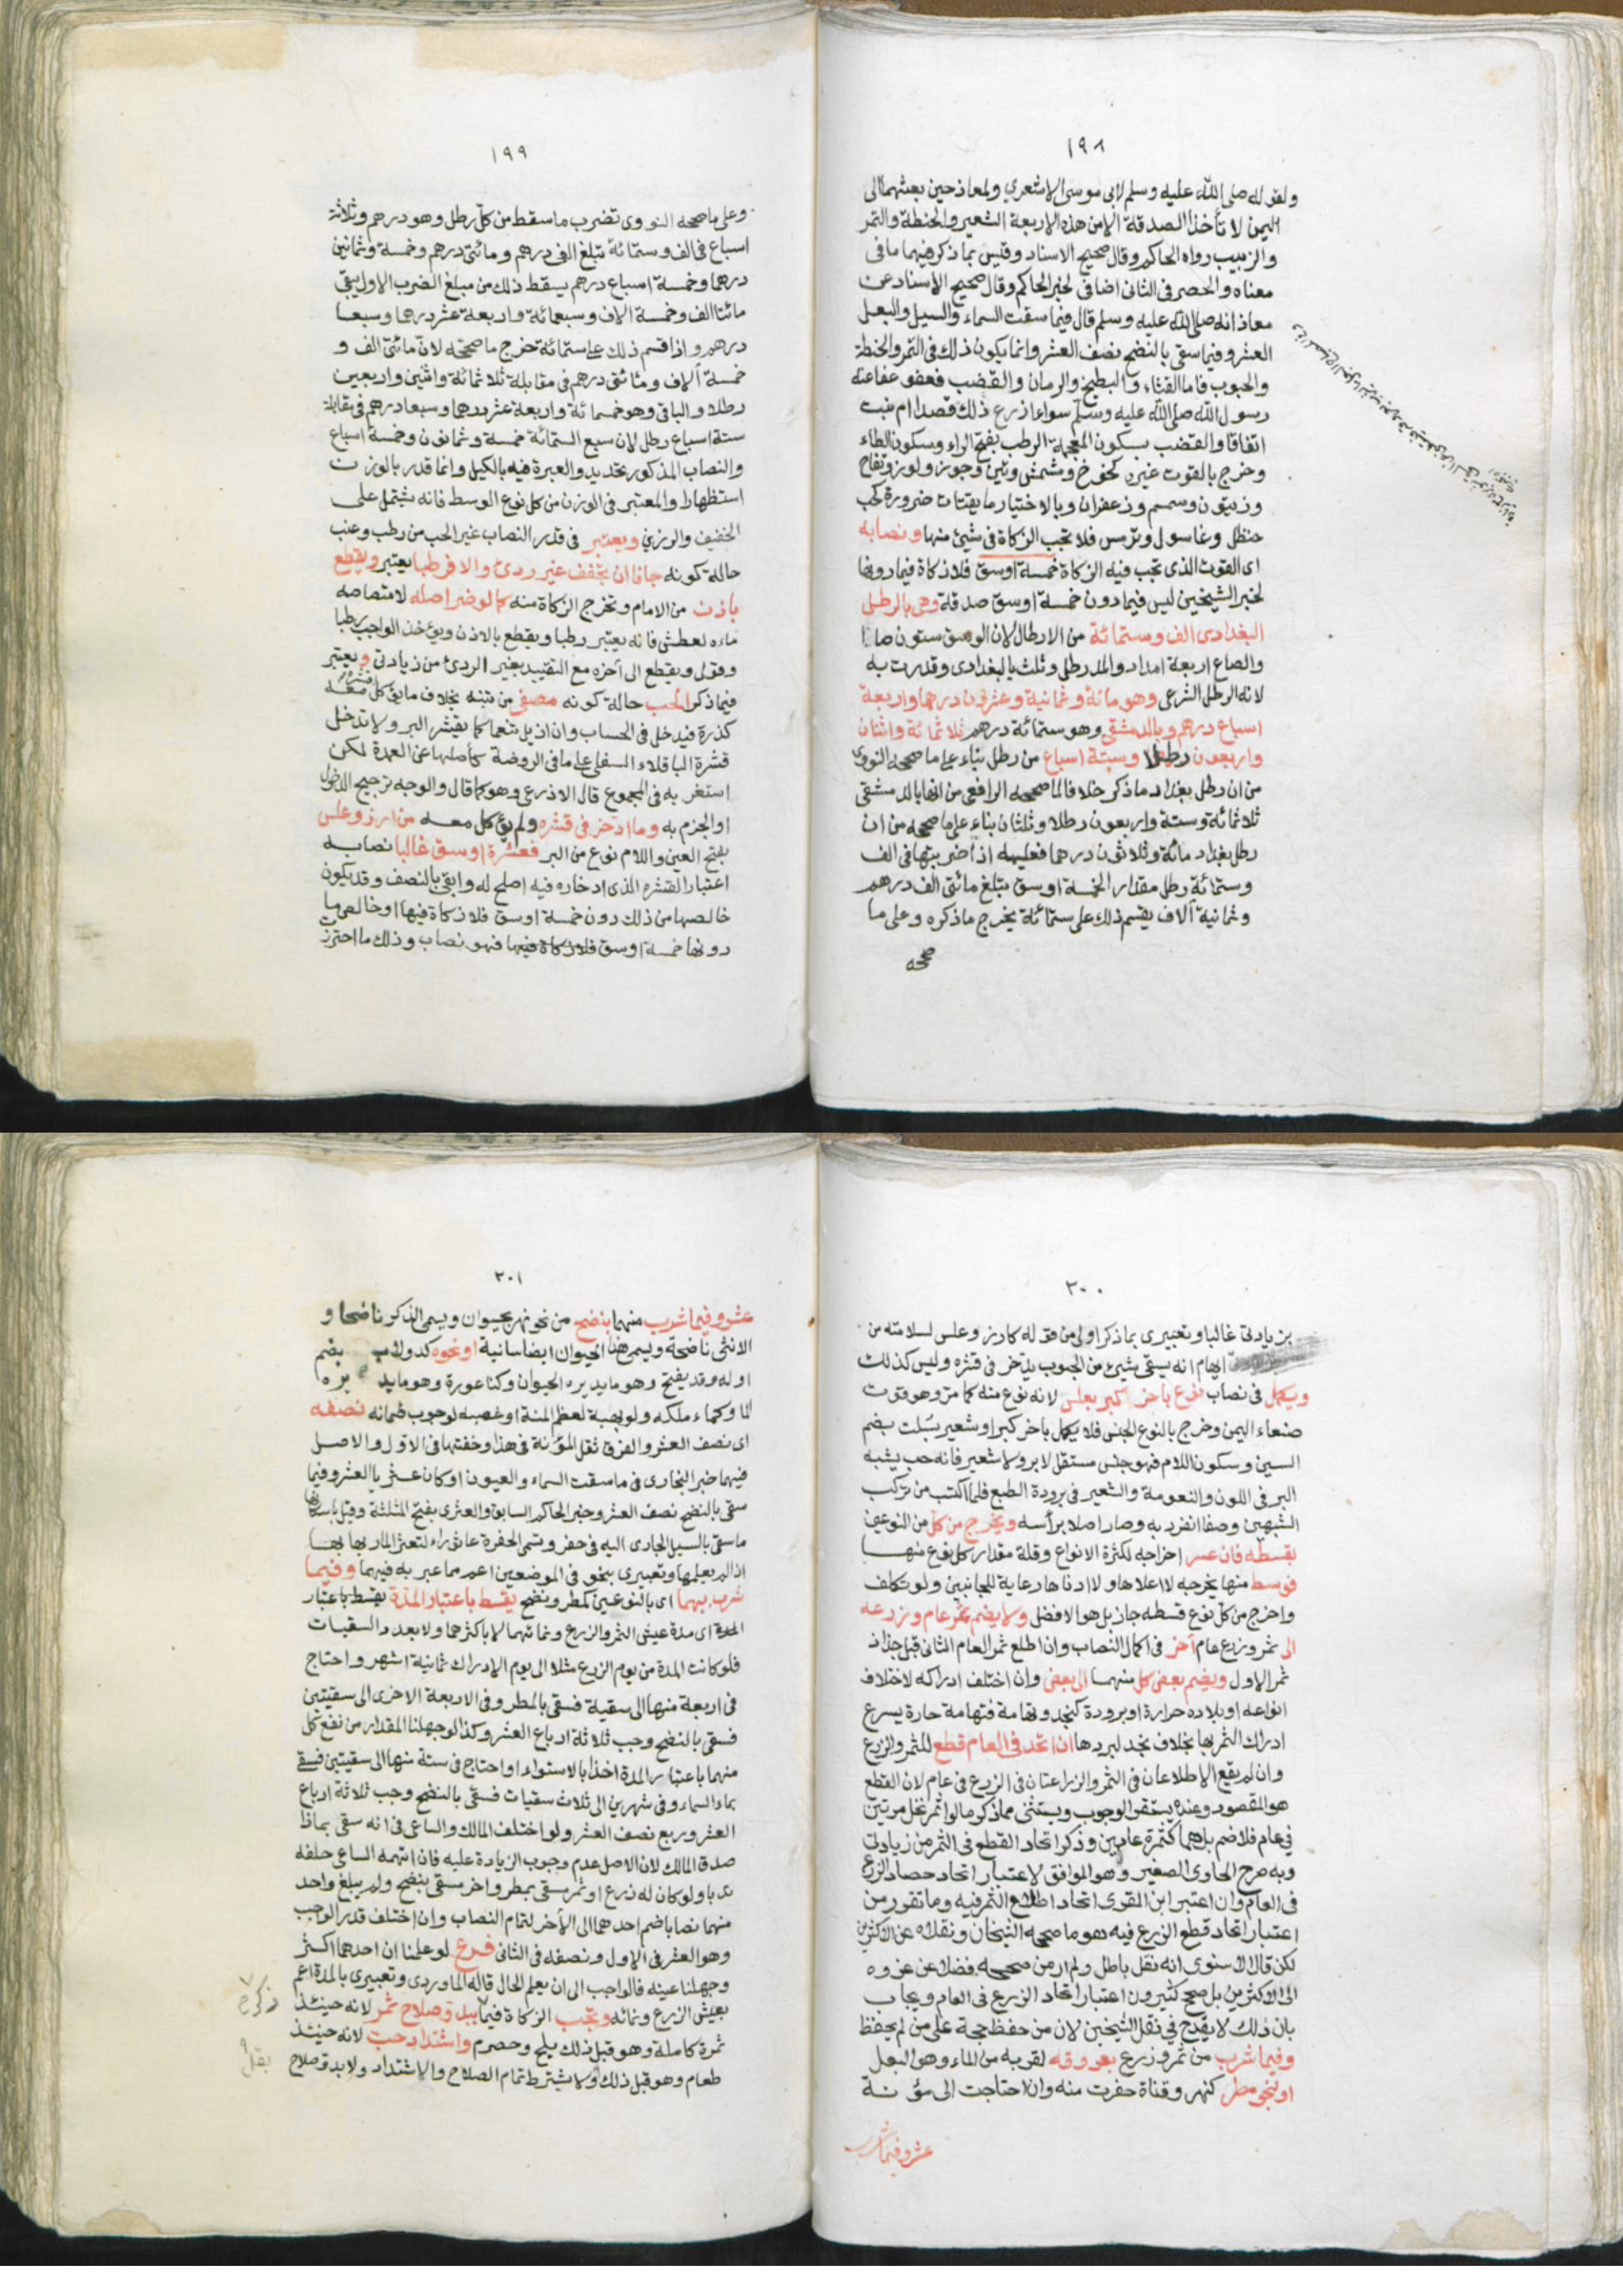 ١٩٨
ولقوله صلى الله عليه وسلم لابي موسى الاشعري ولمعاذ حين بعثهما الى
اليمن لا تأخذا الصدقة الا من هذه الاربعة الشعير والحنطة والتمر
والزبيب رواه الحاكم وقال صحيح الاسناد وقيس بما ذكر فيهما ما في
معناه والحصر في الثاني اضافي لخبر الحاكم وقال صحيح الاسناد عن
معاذ انه صلى الله عليه وسلم قال فيما سقت السماء والسيل والبعل
العشر وفيما سقي بالنضح نصف العشر وانما يكون ذلك في التمر والحنطة
والحبوب فاما القثاء والبطيخ والرمان والقضب فعفو عفا عنه
رسول الله صلى الله عليه وسلم سواء ازرع ذلك قصدا ام نبت
اتفاقا والقضب بسكون المعجمة الرطب بفتح الراء وسكون الطاء
وخرج بالقوت غيره كخوخ ومشمش وتين وجوز ولوز وتفاح
وزيتون وسمسم وزعفران وبالاختيار ما يقتات ضرورة كحب
حنظل وغاسول وترمس فلا تجب الزكاة في شيئ منها ونصابه
اي القوت الذي تجب فيه الزكاة خمسة اوسق فلا زكاة فيما دونها
لخبر الشيخين ليس فيما دون خمسة اوسق صدقة وهي بالرطل
البغدادي الف وستمائة من الارطال لان الوسق ستون صاعا
والصاع اربعة امداد والمد رطل وثلث بالبغدادي وقدرت به
لانه الرطل الشرعي وهو مائة وثمانية وعشرون درهما واربعة
اسباع درهم وبالدمشقي وهو ستمائة درهم ثلاثمائة واثنان
واربعون رطلا وستة اسباع من رطل بناء على ما صححه النووي
من ان رطل بغداد ما ذكر خلافا لما صححه الرافعي من انها بالدمشقي
ثلاثمائة وستة واربعون رطلا وثلثان بناء على ما صححه من ان
رطل بغداد مائة وثلاثون درهما فعليه اذا ضربتها في الف
وستمائة رطل مقدار الخمسة اوسق تبلغ مائتي الف درهم
وثمانية آلاف يقسم ذلك على ستمائة يخرج ما ذكره وعلى ما
صححه
١٩٩
وعلى ما صححه النووي تضرب ما سقط من كل رطل وهو درهم وثلاثة
اسباع في الف وستمائة تبلغ الفي درهم ومائتي درهم وخمسة وثمانين
درهما وخمسة اسباع درهم يسقط ذلك من مبلغ الضرب الاول يبقى
مائتا الف وخمسة الاف وسبعمائة واربعة عشر درهما وسبعا
درهم واذا قسم ذلك على ستمائة خرج ما صححه لان مائتي الف و
خمسة آلاف ومائتي درهم في مقابلة ثلاثمائة واثنين واربعين
رطلا والباقي وهو خمسمائة واربعة عشر درهما وسبعا درهم في مقابلة
ستة اسباع رطل لان سبع الستمائة خمسة وثمانون وخمسة اسباع
والنصاب المذكور تحديد والعبرة فيه بالكيل وانما قدر بالوزن
استظهارا والمعتبر في الوزن من كل نوع الوسط فانه يشتمل على
الخفيف والرزين ويعتبر في قدر النصاب غير الحب من رطب وعنب
حالة كونه جافا ان تجفف غير ردئ والا فرطبا يعتبر ويقطع
باذن من الامام وتخرج الزكاة منه كما لو ضر اصله لامتصاصه
ماءه لعطش فانه يعتبر رطبا ويقطع بالاذن ويؤخذ الواجب رطبا
وقولي ويقطع الى آخره مع التقييد بغير الردئ من زيادتي ويعتبر
فيما ذكر الحب حالة كونه مصفى من تبنه بخلاف ما يؤكل قشره معه
كذرة فيدخل في الحساب وان ازيل تنعما كما يقشر البر ولا تدخل
قشرة الباقلاء السفلى على ما في الروضة كأصلها عن العمدة لكن
استغربه في المجموع قال الاذرعي وهو كما قال والوجه ترجيح الدخول
او الجزم به وما ادخر في قشره ولم يؤكل معه من ارز وعلس
بفتح العين واللام نوع من البر فعشرة اوسق غالبا نصابه
اعتبارا لقشره الذي ادخاره فيه اصلح له وابقى بالنصف وقد يكون
خالصها من ذلك دون خمسة اوسق فلا زكاة فيها او خالص ما
دونها خمسة اوسق فهو نصاب وذلك ما احترزت
٢٠٠
بزيادتي غالبا وتعبيري بما ذكر اولى من قوله كارز وعلس لسلامته من
ايهام انه يبقى شيئ من الحبوب يدخر في قشره وليس كذلك
ويكمل في نصاب نوع باخر كبر بعلس لانه نوع منه كما مر وهو قوت
صنعاء اليمن وخرج بالنوع الجنس فلا يكمل باخر كبر او شعير بسلت بضم
السين وسكون اللام فهو جنس مستقل لا بر ولا شعير فانه حب يشبه
البر في اللون والنعومة والشعير في برودة الطبع فلما اكتسب من تركب
الشبهين وصفا انفرد به وصار اصلا برأسه ويخرج من كل من النوعين
بقسطه فان عسر اخراجه لكثرة الانواع وقلة مقدار كل نوع منها
فوسط منها يخرجه لا اعلاها ولا ادناها رعاية للجانبين ولو تكلف
واخرج من كل نوع قسطه جاز بل هو الافضل ولا يضم ثمر عام وزرعه
الى ثمر وزرع عام آخر في اكمال النصاب وان اطلع ثمر العام الثاني قبل جذاذ
ثمر الاول ويضم بعض كل منهما الى بعض وان اختلف ادراكه لاختلاف
انواعه او بلاده حرارة او برودة كنجد وتهامة فتهامة حارة يسرع
ادراك الثمر بها بخلاف نجد لبردها ان اتحد في العام قطع للثمر والزرع
وان لم يقع الاطلاعان في الثمر والزراعتان في الزرع في عام لان القطع
هو المقصود وعنده يستقر الوجوب ويستثنى مما ذكر ما لو اثمر نخل مرتين
في عام فلا ضم بل هما كثمرة عامين وذكر اتحاد القطع في الثمر من زيادتي
وبه صرح الحاوي الصغير وهو الموافق لاعتبار اتحاد حصاد الزرع
في العام وان اعتبر ابن المقري اتحاد اطلاع الثمر فيه وما تقرر من
اعتبار اتحاد قطع الزرع فيه هو ما صححه الشيخان ونقلاه عن الاكثرين
لكن قال الاسنوي انه نقل باطل ولم ار من صححه فضلا عن عزوه
الى الاكثرين بل صحح كثيرون اعتبار اتحاد الزرع في العام ويجاب
بان ذلك لا يقدح في نقل الشيخين لان من حفظ حجة على من لم يحفظ
وفيما شرب من ثمر وزرع بعروقه لقربه من الماء وهو البعل
او بنحو مطر كنهر وقناة حفرت منه وان احتاجت الى مؤنة
عشر وفيما شرب
٢٠١
عشر وفيما شرب منهما بنضح من نحو نهر بحيوان ويسمى الذكر ناضحا و
الانثى ناضحة ويسمى هذا الحيوان ايضا سانية او نحوه كدولاب بضم
اوله وقد يفتح وهو ما يديره الحيوان وكناعورة وهو ما يديره
الماء وكماء ملكه ولو بهبة لعظم المنة او غصبه لوجوب ضمانه نصفه
اي نصف العشر والفرق ثقل المؤنة في هذا وخفتها في الاول والاصل
فيهما خبر البخاري فيما سقت السماء والعيون او كان عثريا العشر وفيما
سقي بالنضح نصف العشر وخبر الحاكم السابق والعثري بفتح المثلثة وقيل باسكانها
ما سقي بالسيل الجاري اليه في حفر وتسمى الحفرة عاثوراء لتعثر المار بها
اذا لم يعلمها وتعبيري بنحو في الموضعين اعم مما عبر به فيهما وفيما
شرب بهما اي بالنوعين كمطر ونضح يقسط باعتبار المدة يقسط باعتبار
المدة اي مدة عيش الثمر والزرع ونمائهما لا باكثرهما ولا بعدد السقيات
فلو كانت المدة من يوم الزرع مثلا الى يوم الادراك ثمانية اشهر واحتاج
في اربعة منها الى سقية فسقي بالمطر وفي الاربعة الاخرى الى سقيتين
فسقي بالنضح وجب ثلاثة ارباع العشر وكذا لو جهلنا المقدار من نفع كل
منهما باعتبار المدة اخذا بالاستواء او احتاج في ستة منها الى سقيتين فسقي
بماء السماء وفي شهرين الى ثلاث سقيات فسقي بالنضح وجب ثلاثة ارباع
العشر وربع نصف العشر ولو اختلف المالك والساعي في انه سقي بماذا
صدق المالك لان الاصل عدم وجوب الزيادة عليه فان اتهمه الساعي حلفه
ندبا ولو كان له زرع او ثمر سقي بمطر واخر سقي بنضح ولم يبلغ واحد
منهما نصابا ضم احدهما الى الآخر لتمام النصاب وان اختلف قدر الواجب
وهو العشر في الاول ونصفه في الثاني فرع لو علمنا ان احدهما اكثر
وجهلنا عينه فالواجب الى ان يعلم الحال قاله الماوردي وتعبيري بالمدة اعم
بعيش الزرع ونمائه وتجب الزكاة فيما يبدو صلاح ثمر لانه حينئذ
ثمرة كاملة وهو قبل ذلك بلح وحصرم واشتداد حب لانه حينئذ
طعام وهو قبل ذلك ولا يشترط تمام الصلاح والاشتداد ولا بدو صلاح